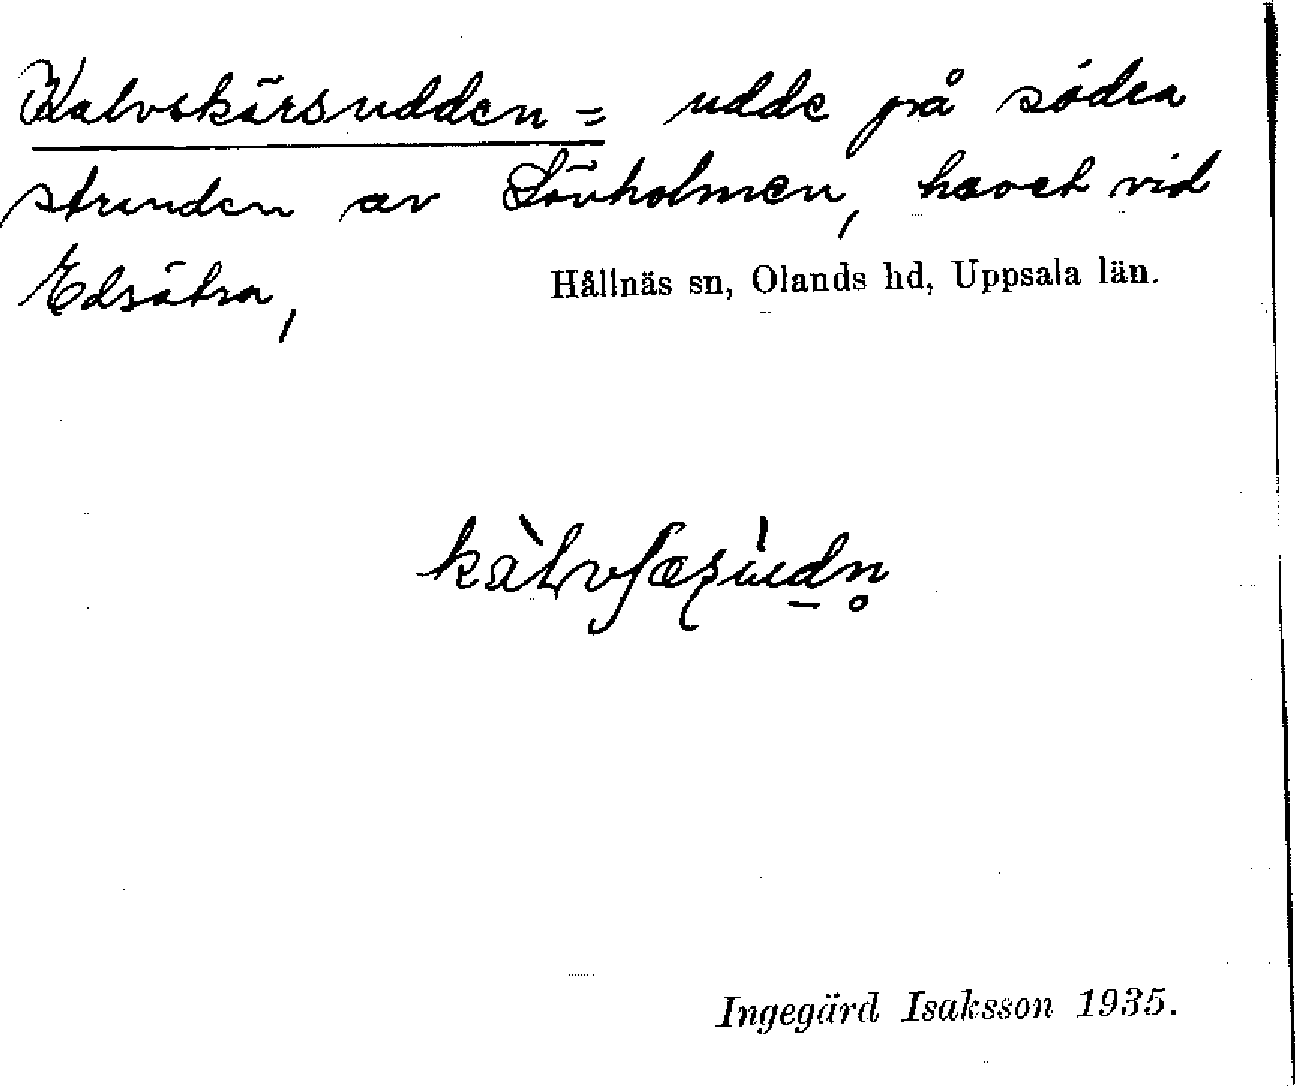 Kalvskärsudden = udde på södra
stranden av Lövholmen, havet vid
Edsätra, Hållnäs sn, Olands hd, Uppsala län.
Ingegärd Isaksson 1935.